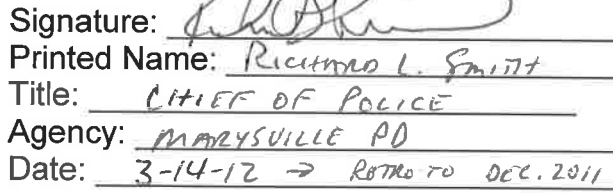 Signature:
Printed Name: RICHARD L. SMITH
Title: CHIEF OF POLICE
Agency: MARYSVILLE PD
Date: 3-14-12 → RETRO TO DEC. 2011